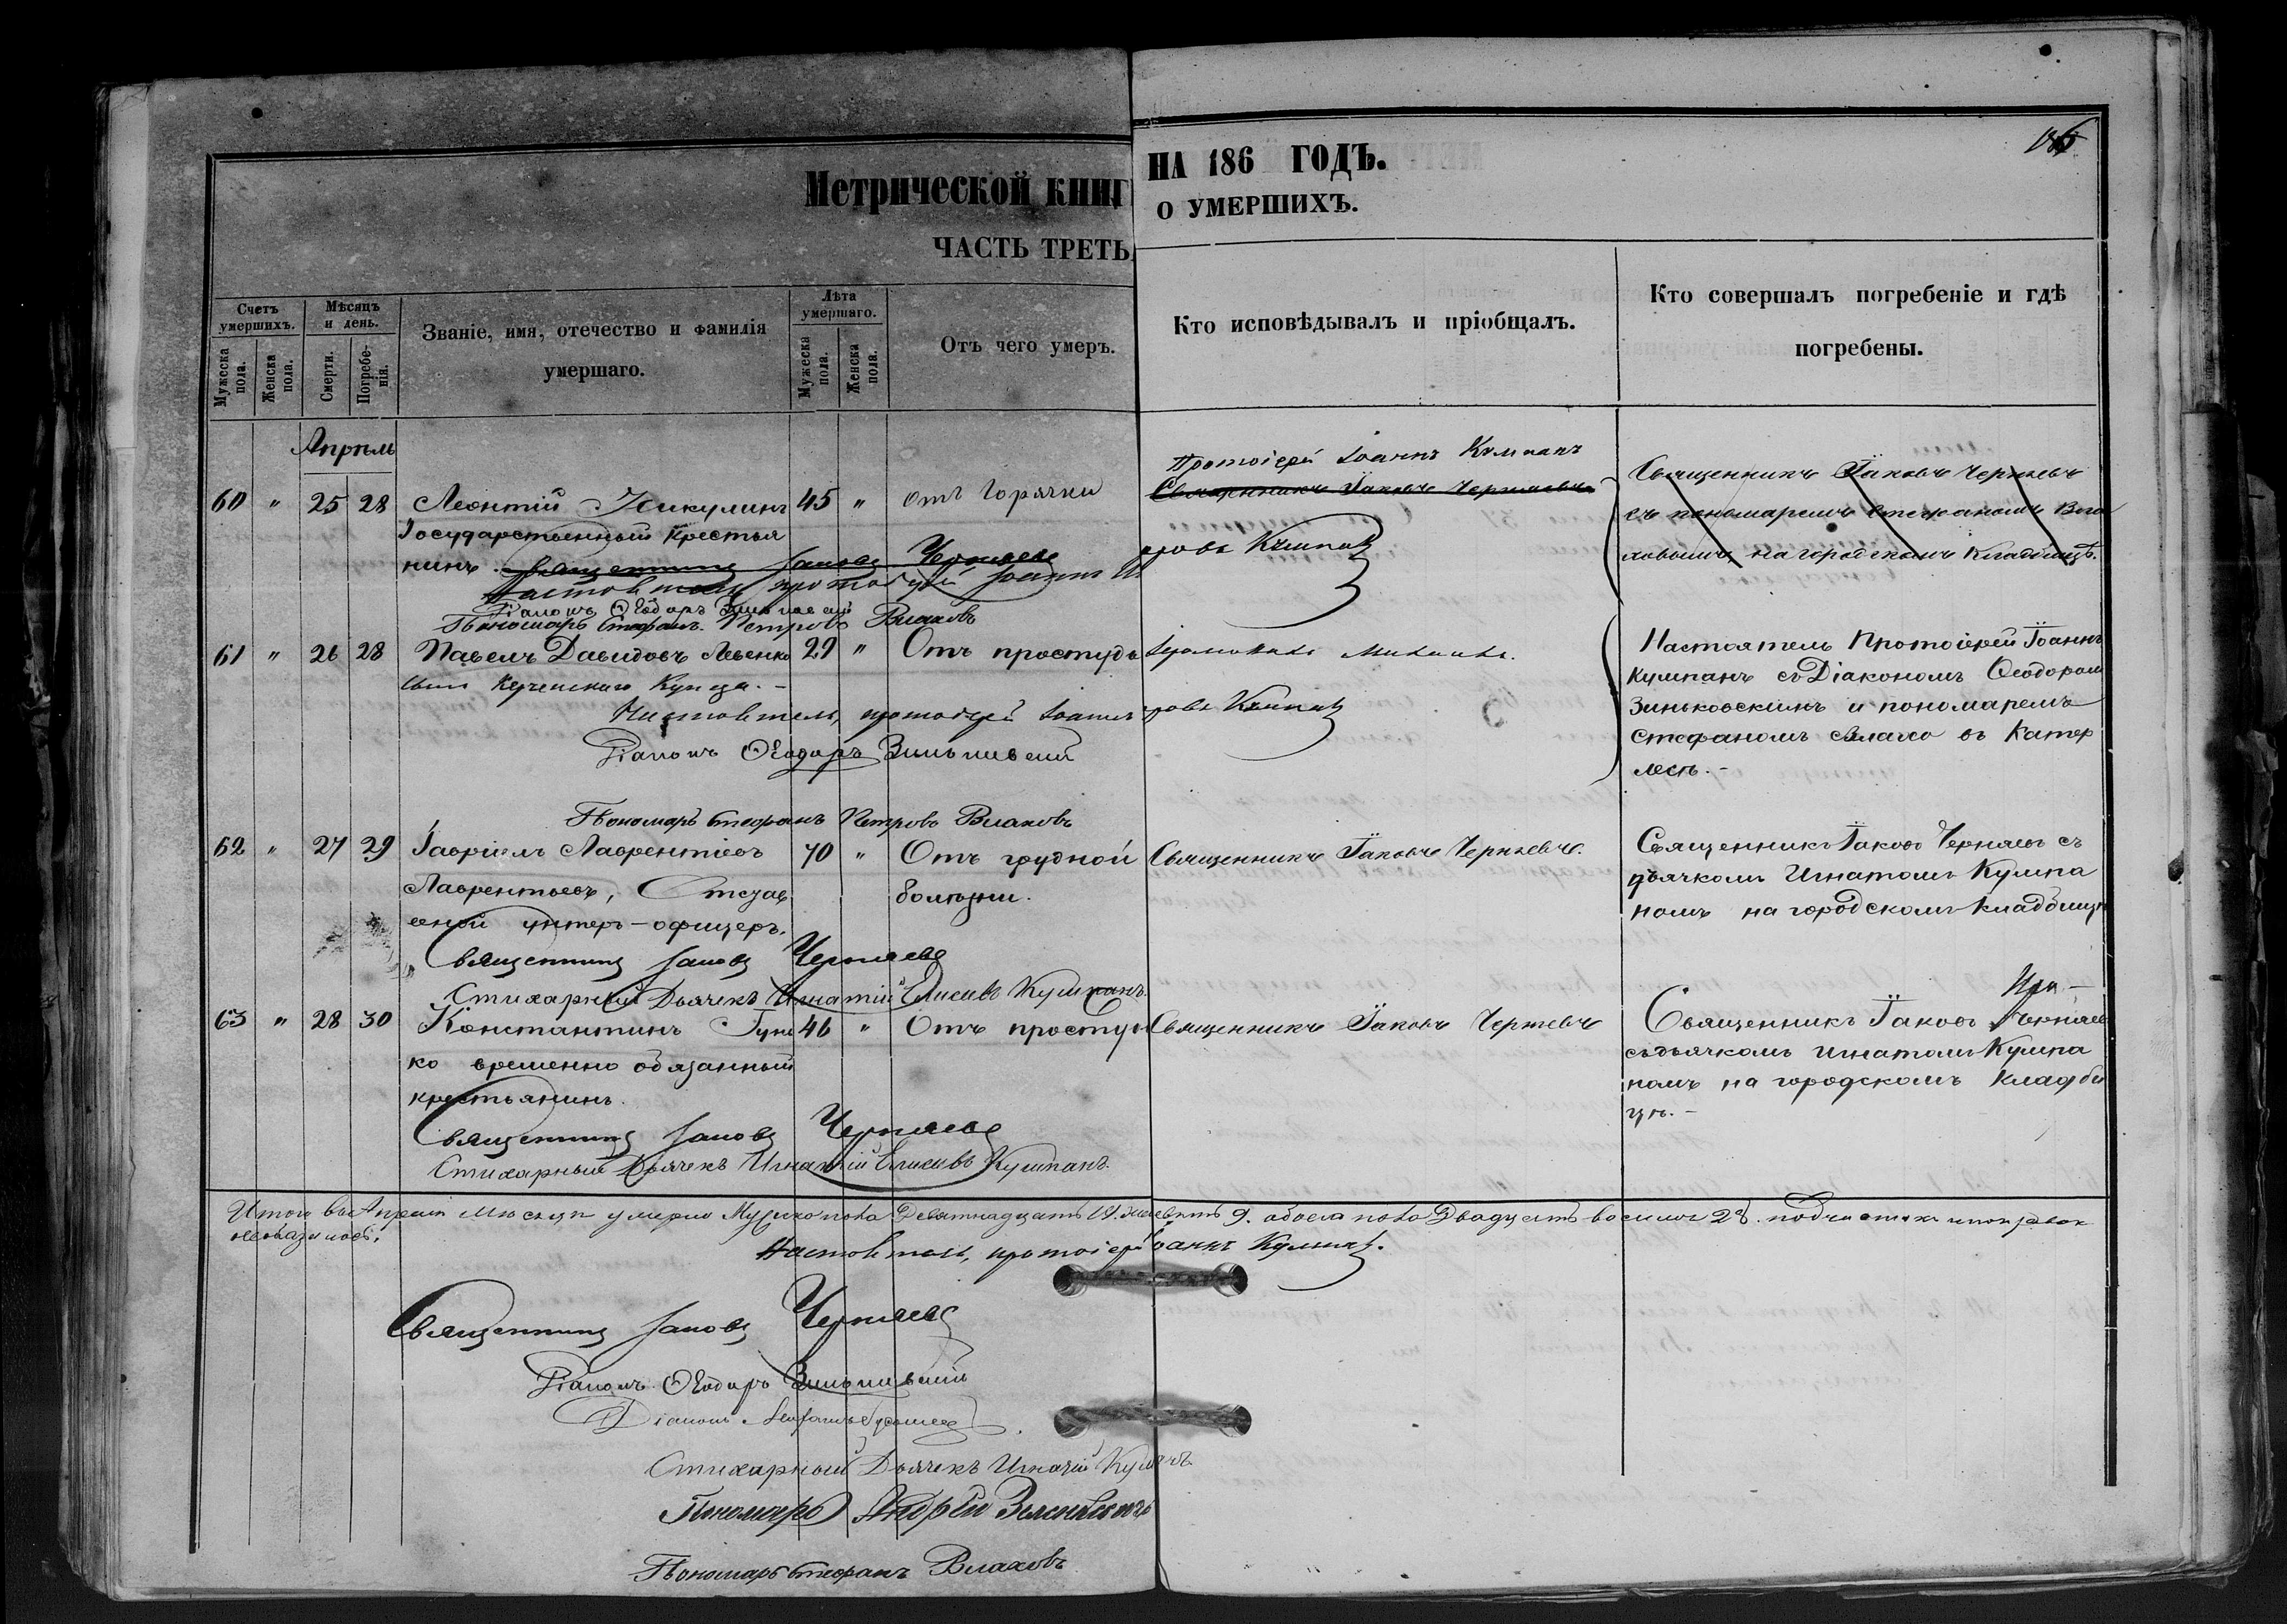 Метрической книг
НА 186 ГОДЪ.
ЧАСТЬ ТРЕТЬ
О УМЕРШИХЪ.
Счетъ умершихъ.
Мужеска пола.
Женска пола.
Мѣсяцъ и день.
Смерти.
Погребе-
нія.
Званіе, имя, отечество и фамилія
умершаго.
Лѣта умершаго.
Мужеска пола.
Женска пола.
Отъ чего умеръ.
Кто исповѣдывалъ и пріобщалъ.
Кто совершалъ погребеніе и гдѣ
погребены.
Апрѣль
60 " 25 28 Леонтій Никулинъ 45 " отъ Горячки
Государственный крестья
нинъ. Священникъ Іаковъ Черняевъ
Настоятель протоіерей Іоаннъ
Діаконъ Ѳеодоръ Зиньковскій
Пономарь Стефанъ Петровъ Влаховъ
Протоіерей Іоаннъ Кумпанъ
Священникъ Іаковъ Черняевъ
Кумпанъ
Священникъ Іаковъ Черняевъ
съ пономаремъ Стефаномъ Вла
ховымъ, на городскомъ кладбищѣ.
61 " 26 28 Павелъ Давидовъ Левенко 29 " Отъ простуды
сынъ Керченскаго Купца. -
Настоятель, протоіерей Іоаннъ Кумпанъ
Діаконъ Ѳеодоръ Зиньковскій
Пономарь Стефанъ Петровъ Влаховъ
Настоятель Протоіерей Іоаннъ
Кумпанъ съ Діакономъ Ѳеодоромъ
Зиньковскимъ и пономаремъ
Стефаномъ въ Катер
лесѣ. -
62 " 27 29 Гавріилъ Лаврентіевъ 70 " Отъ грудной
Лаврентьевъ, Отстав болѣзни.
еной унтеръ-офицеръ.
Священникъ Іаковъ Черняевъ
Стихарный Дьячекъ Игнатій Елисѣевъ Кумпанъ.
Священникъ Іаковъ Черняевъ.
Священникъ Іаковъ Черняевъ съ
дьячкомъ Игнатомъ Кумпа
номъ на городскомъ кладбищѣ
63 " 28 30 Константинъ Гуне 46 " Отъ просту
ко временно обязанный
крестьянинъ.
Священникъ Іаковъ Черняевъ
Стихарный Дьячекъ Игнатій Елисѣевъ Кумпанъ.
Священникъ Іаковъ Черняевъ
Священникъ Іаковъ Черняев
съ дьячкомъ Игнатомъ Кумпа
номъ на городскомъ кладби
щѣ. -
Итого въ Апрелѣ мѣсяцѣ умерло Мужско пола Девятнадцать 19. 9. обоего пола Двадцать восемь 28.
Настоятель, протоіерей Іоаннъ Кумпанъ.
Священникъ Іаковъ Черняевъ
Діаконъ Ѳеодоръ Зиньковскій
Діаконъ
Стихарный Дьячекъ Игнатій Кумпанъ
Пономарь Андрей
Пономарь Стефанъ Влаховъ